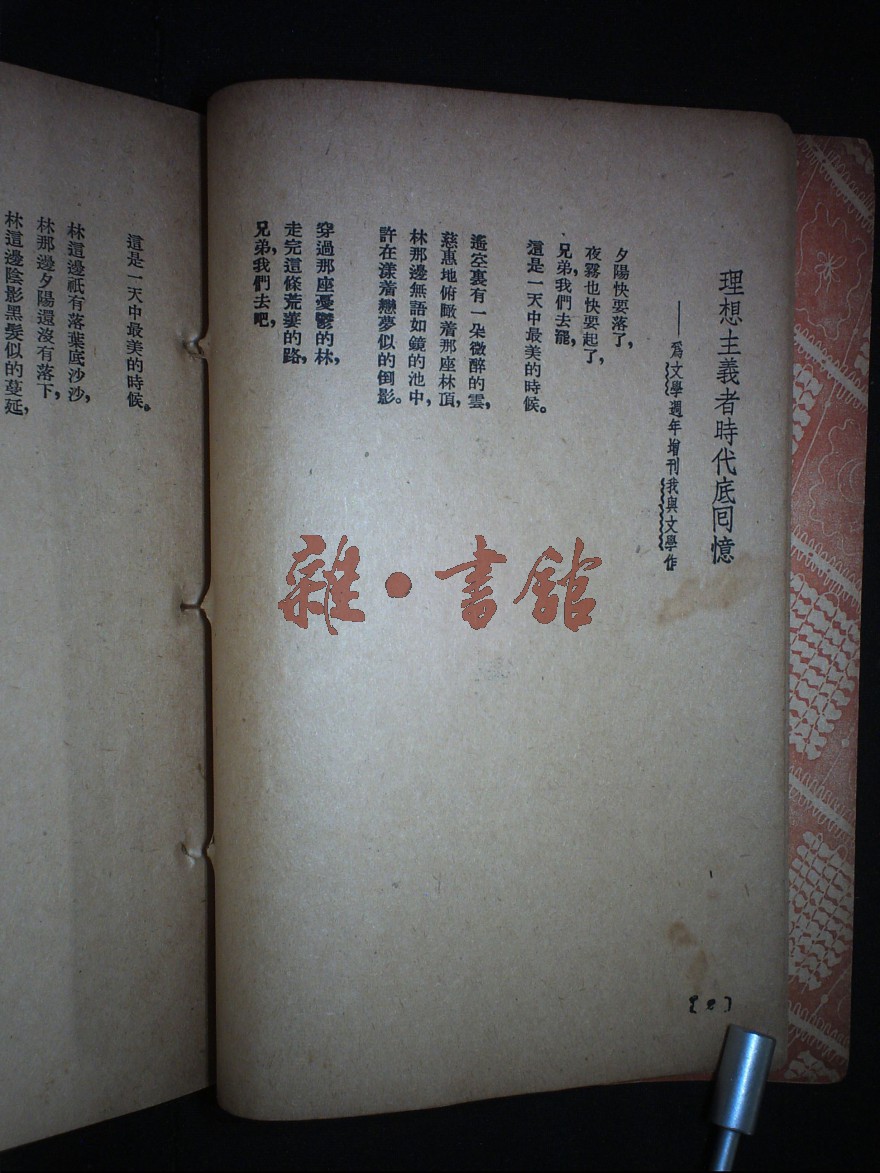 理想主義者時代底回憶
——爲文學週年增刊我與文學作
夕陽快要落了，
夜霧也快要起了，
兄弟，我們去罷，
這是一天中最美的時候。
遙空裏有一朵微醉的雲，
慈惠地俯瞰着那座林頂，
林那邊無語如鏡的池中，
許在漾着戀夢似的倒影。
穿過那座憂鬱的林，
走完這條荒蕪的路，
兄弟，我們去吧，
這是一天中最美的時候。
林這邊祇有落葉底沙沙，
林那邊夕陽還沒有落下，
林這邊陰影黑髮似的蔓延，
雜·書館